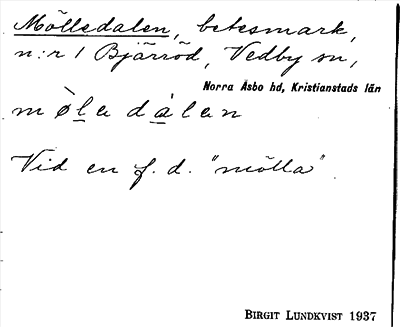 Mölledalen, betesmark,
n:r 1 Bjärröd, Vedby sn,
Norra Åsbo hd, Kristianstads län
mø̀lɐ dàlɐn
Vid en f.d. "mölla".
BIRGIT LUNDKVIST 1937